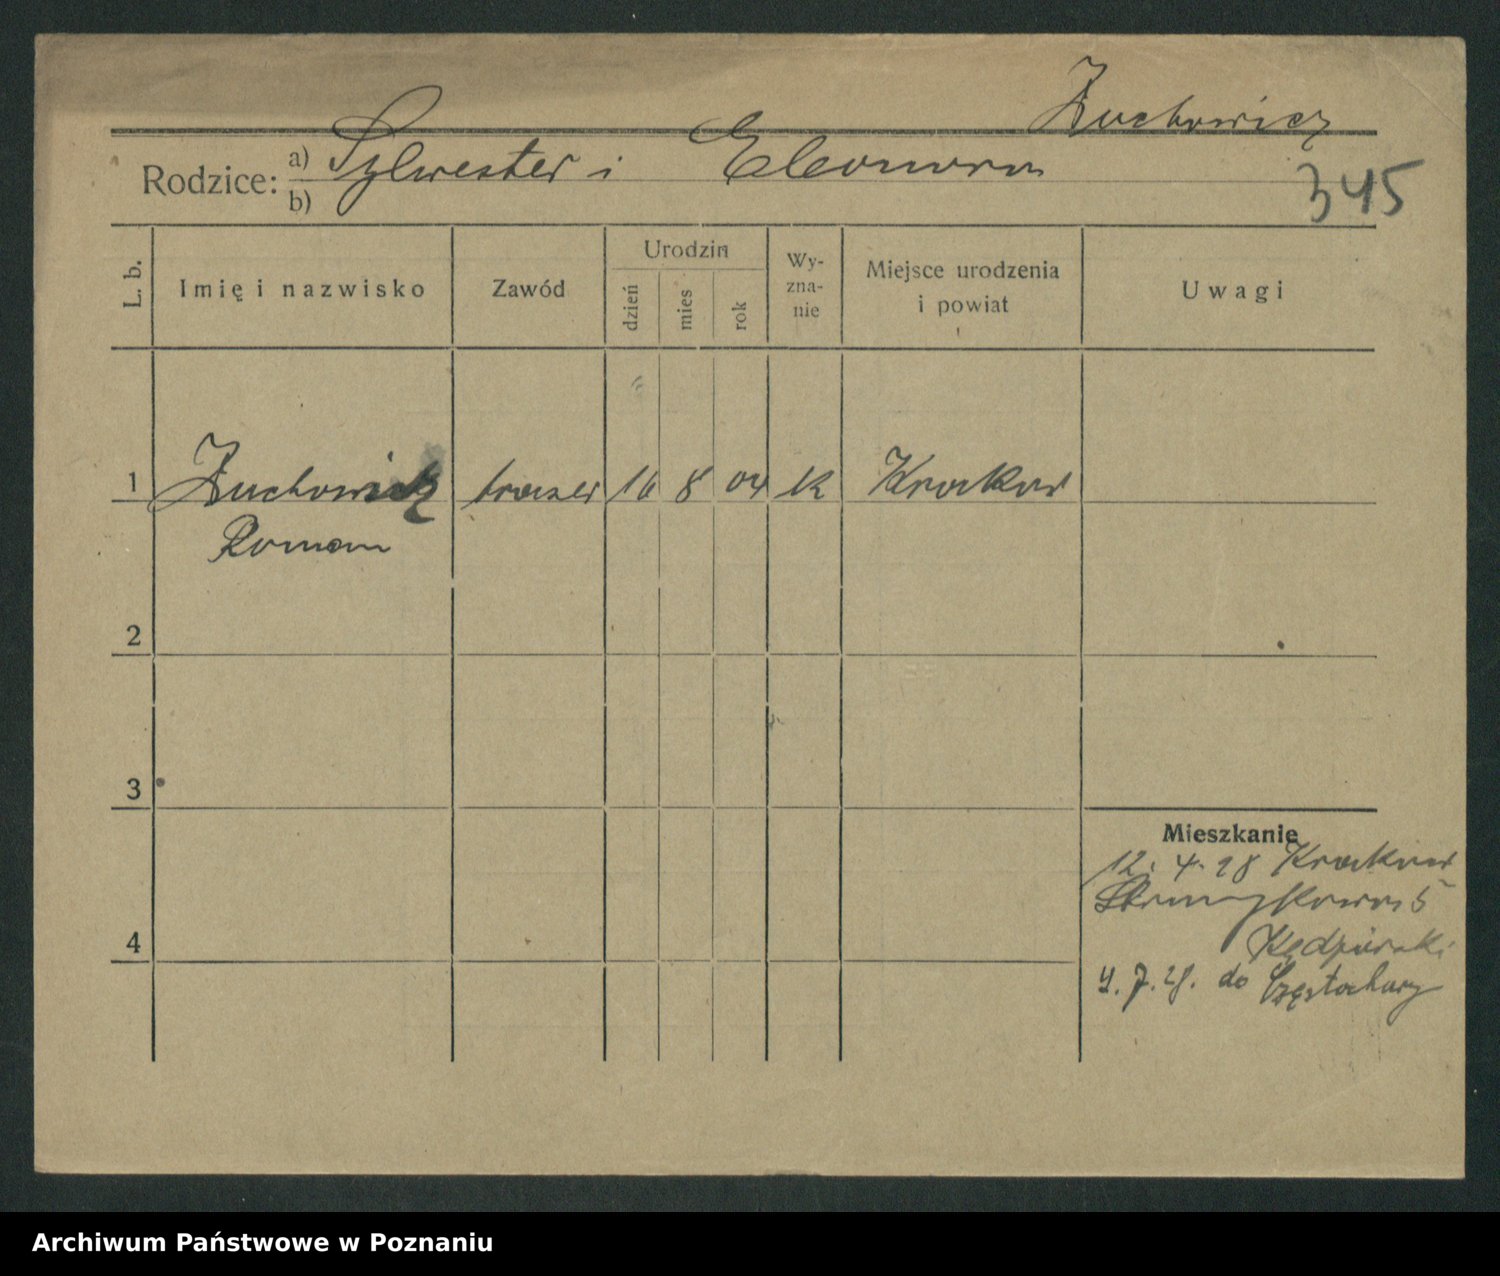 Żuchowicz
Rodzice: a) Sylwester i Eleonora
b)
345
L. b. Imię i nazwisko Zawód Urodzin dzień mies rok Wyznanie Miejsce urodzenia i powiat Uwagi
1 Żuchowicz traser 16 8 04 k Kraków
Roman
2
3
Mieszkanie
12. 4. 28 Kraków
5
4
4. 7. 28. do Częstochowy
Archiwum Państwowe w Poznaniu